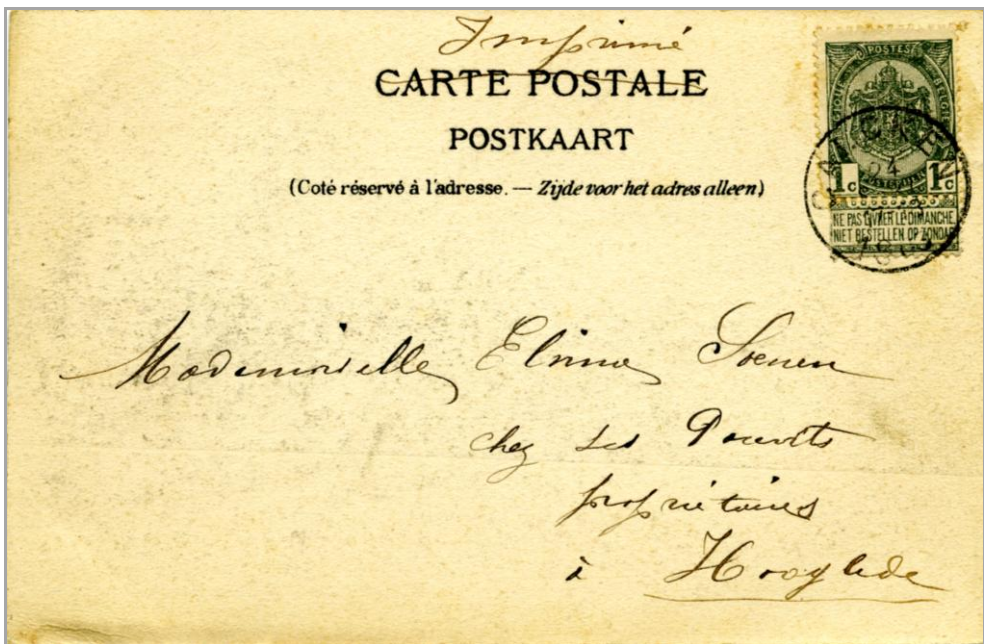 Imprimé
CARTE POSTALE
POSTKAART
(Coté réservé à l'adresse. — Zijde voor het adres alleen)
POSTES
1c 1c
POSTERIJEN
NE PAS LIVRER LE DIMANCHE
NIET BESTELLEN OP ZONDAG
24
Mademoiselle Soenen
chez ses
propriétaires
à Hooglede